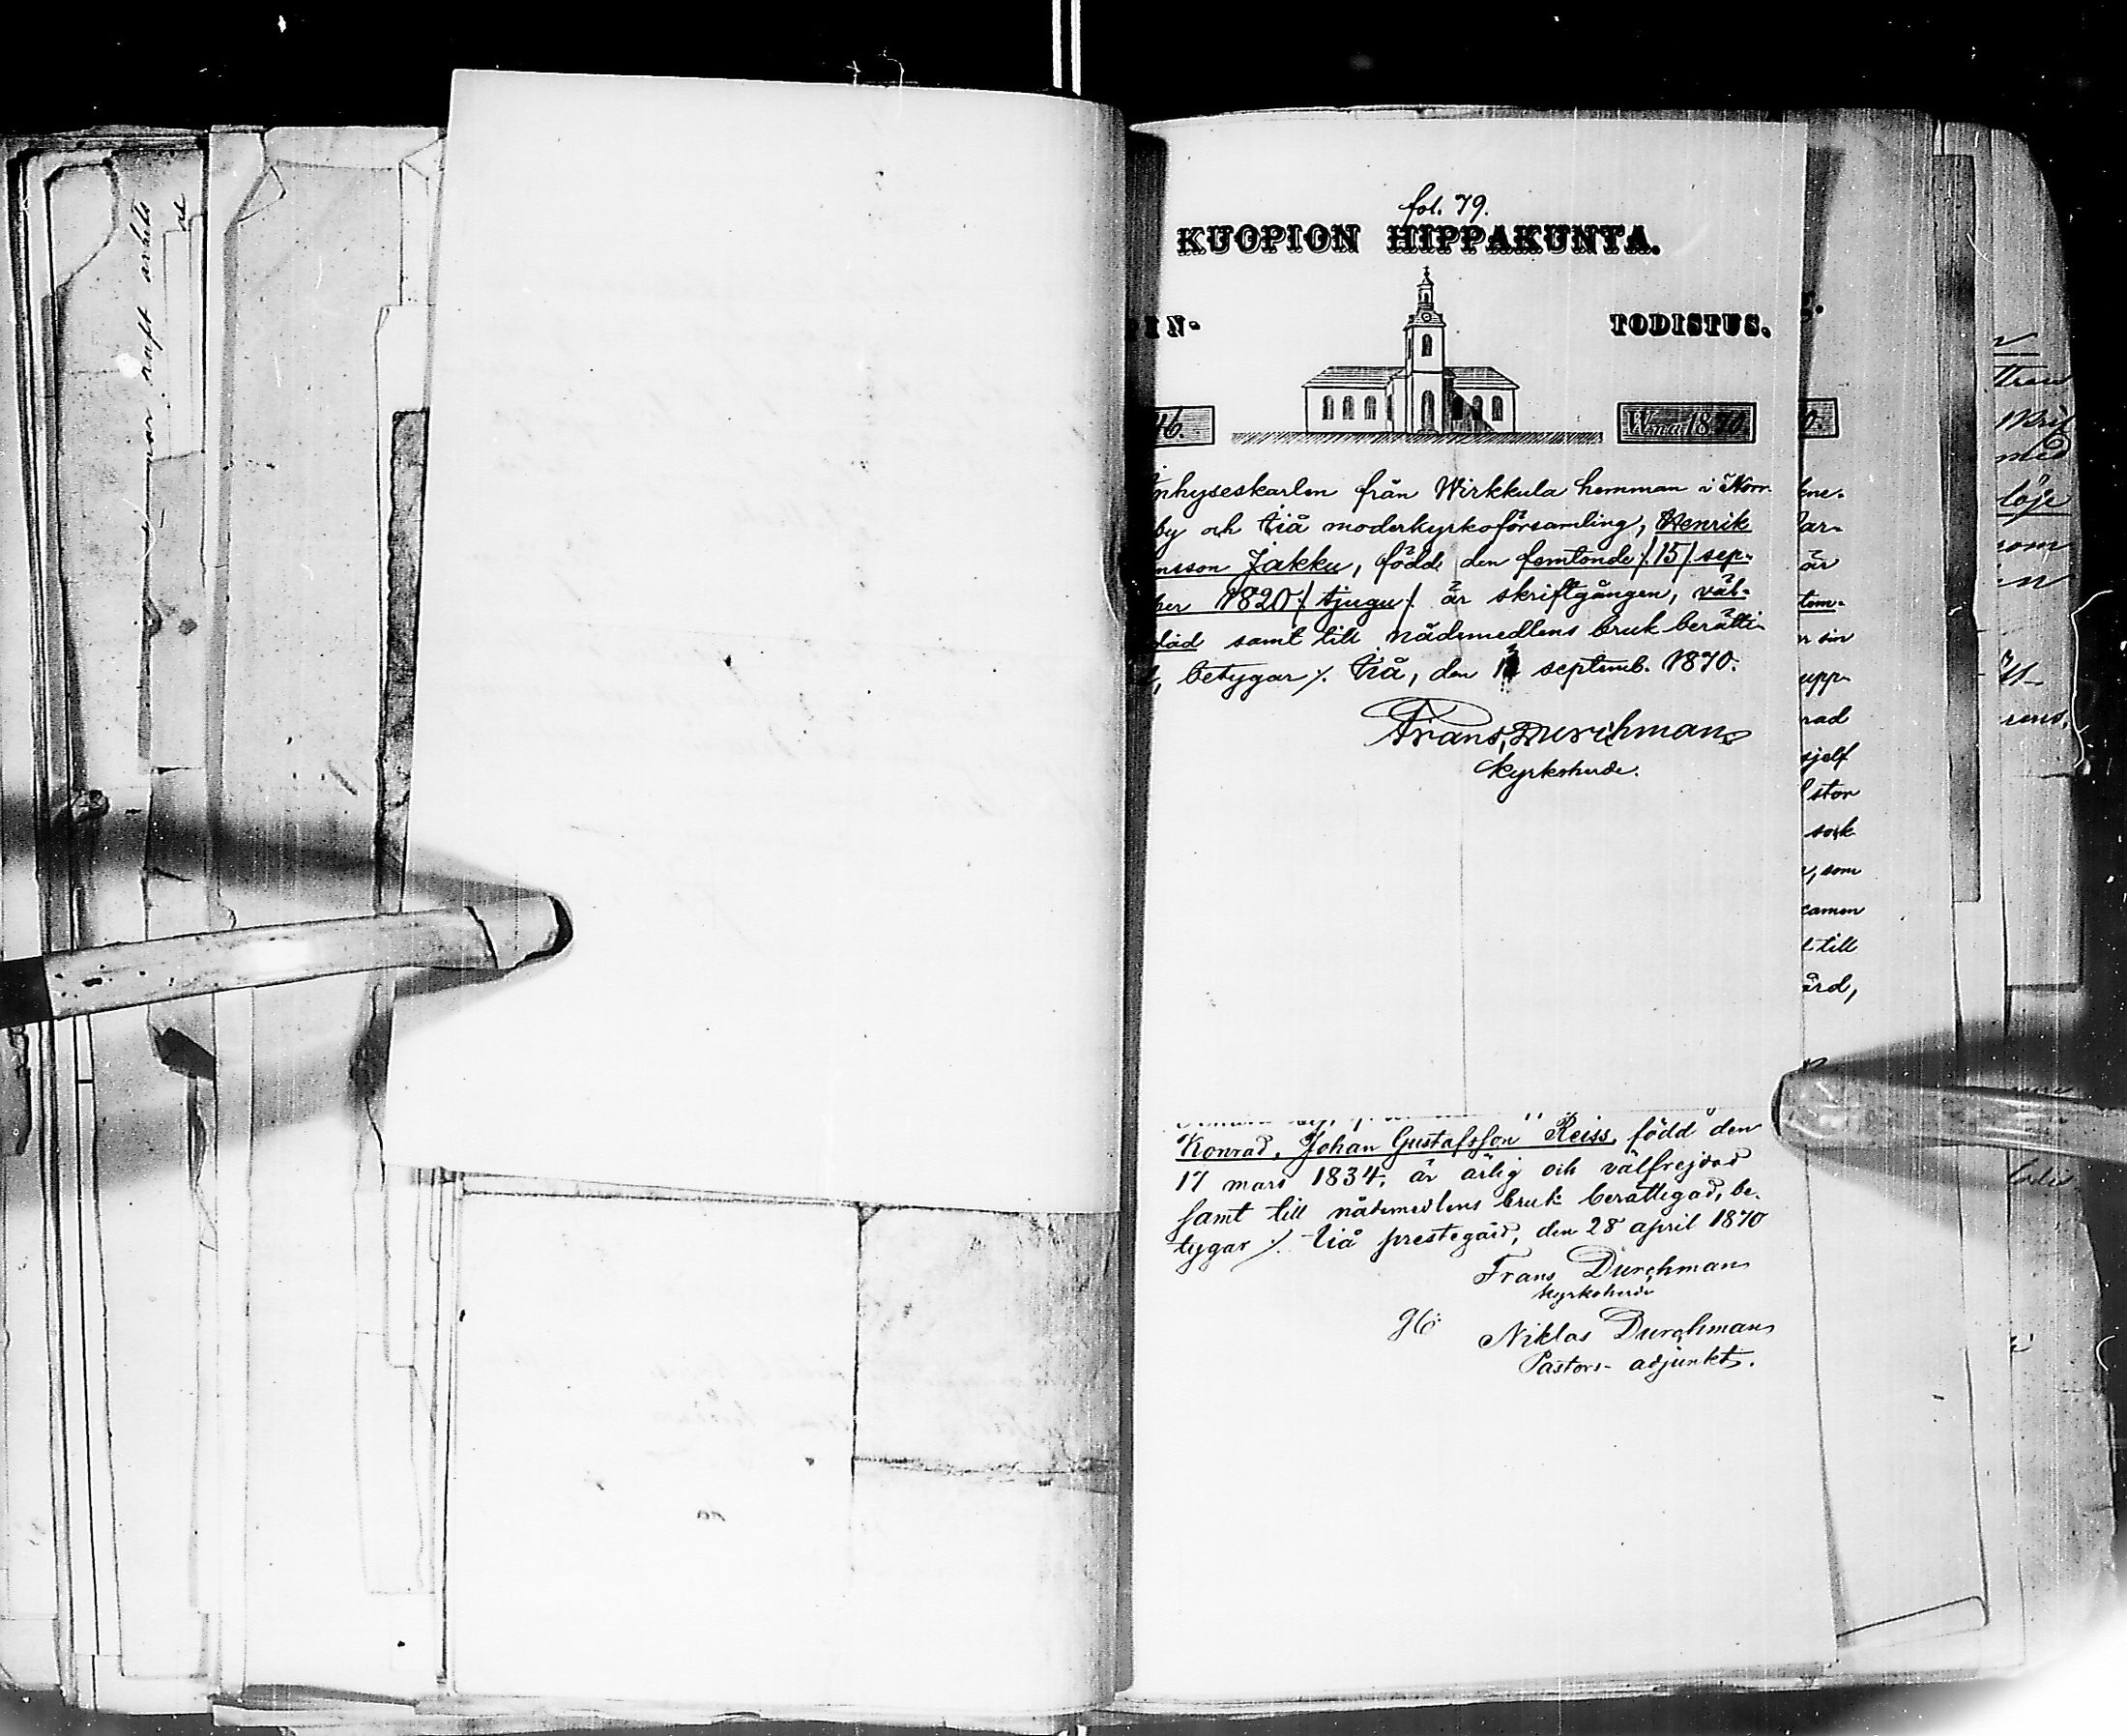 fol. 79.
KUOPION HIPPAKUNTA.
IN- TODISTUS.
46. W:na 1870.
Inhyseskarlen från Wirkkula hemman i Norr-
by och Iiå moderkyrkoförsamling, Henrik
nsson Jakku, född den femtonde /:15:/ sep-
ber 1820 /:tjugu:/ är skriftgången, väl-
dad samt till nådemedlens bruk berätti-
betygar ./. Iiå, den septemb. 1870.
Frans Durchman
Kyrkoherde.
Konrad, Johan Gustafsson Reiss, född den
17 mars 1834, är ärlig och välfrejdad
samt till nådemedlens bruk berättigad, be-
tygar ./. Iiå prestegård, den 28 april 1870
Frans Durchman
Kyrkoherde
Niklas Durchman
Pastors-adjunkt.
ar-
är
tem-
r sin
upp-
rad
sjelf
stor
sock
, som
till
ård,
med
löje
som